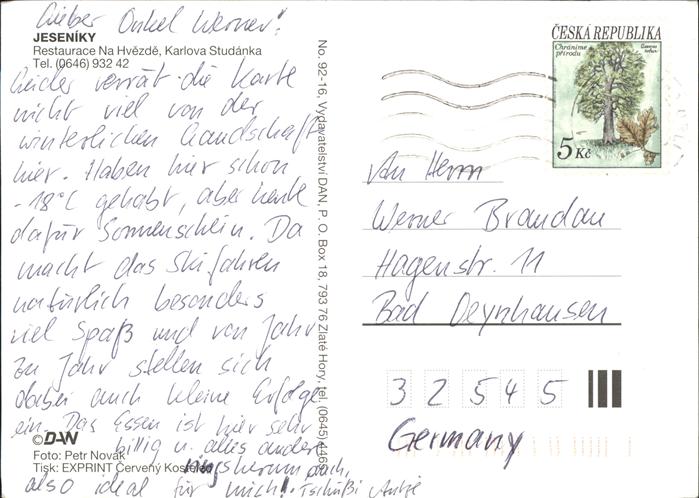 Lieber Onkel Werner!
JESENÍKY
Restaurace Na Hvězdě, Karlova Studánka
Tel. (0646) 932 42
Leider verrät die Karte
nicht viel von der
winterlichen Landschaft
hier. Haben hier schon
-18°C gehabt, aber heute
dafür Sonnenschein. Da
macht das Skifahren
natürlich besonders
viel Spaß und von Jahr
zu Jahr stellen sich
dabei auch kleine Erfolge
ein. Das Essen ist hier sehr
billig u. alles andere
ringsherum auch,
also ideal für mich! Tschüßi Antje
©DAN
Foto: Petr Novák
Tisk: EXPRINT Červený Kostelec
No. 92-16, Vydavatelství DAN, P. O. Box 18, 793 76 Zlaté Hory, tel. (0645)
ČESKÁ REPUBLIKA
Chráníme
přírodu
5 Kč
An Herrn
Werner Brandau
Hagenstr. 11
Bad Oeynhausen
32545
Germany